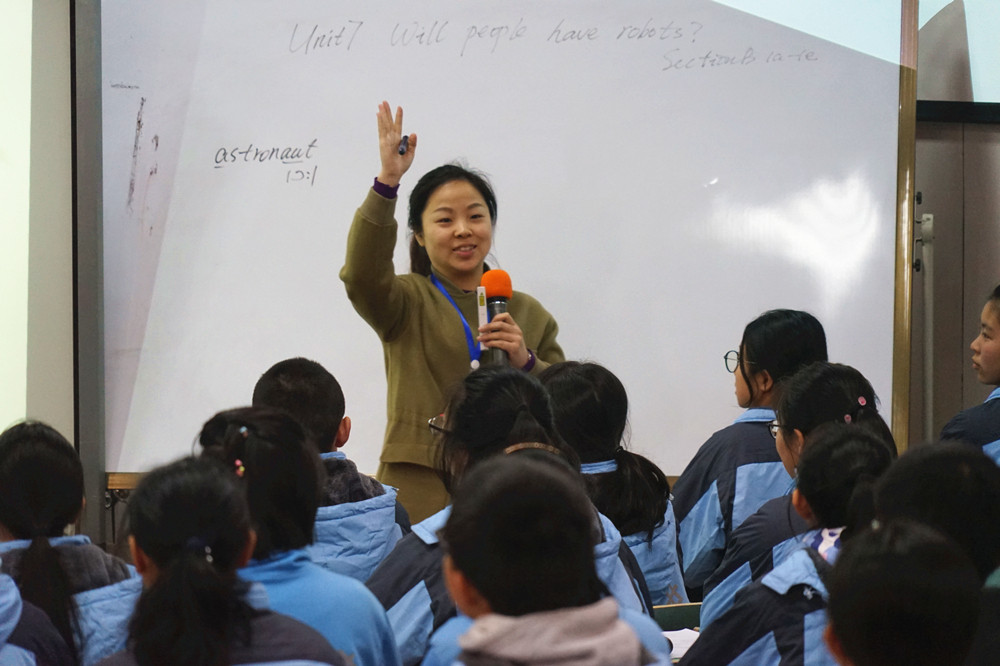 Unit7 Will people have robots?
Section B 1a-1e
astronaut
/ɔ:/